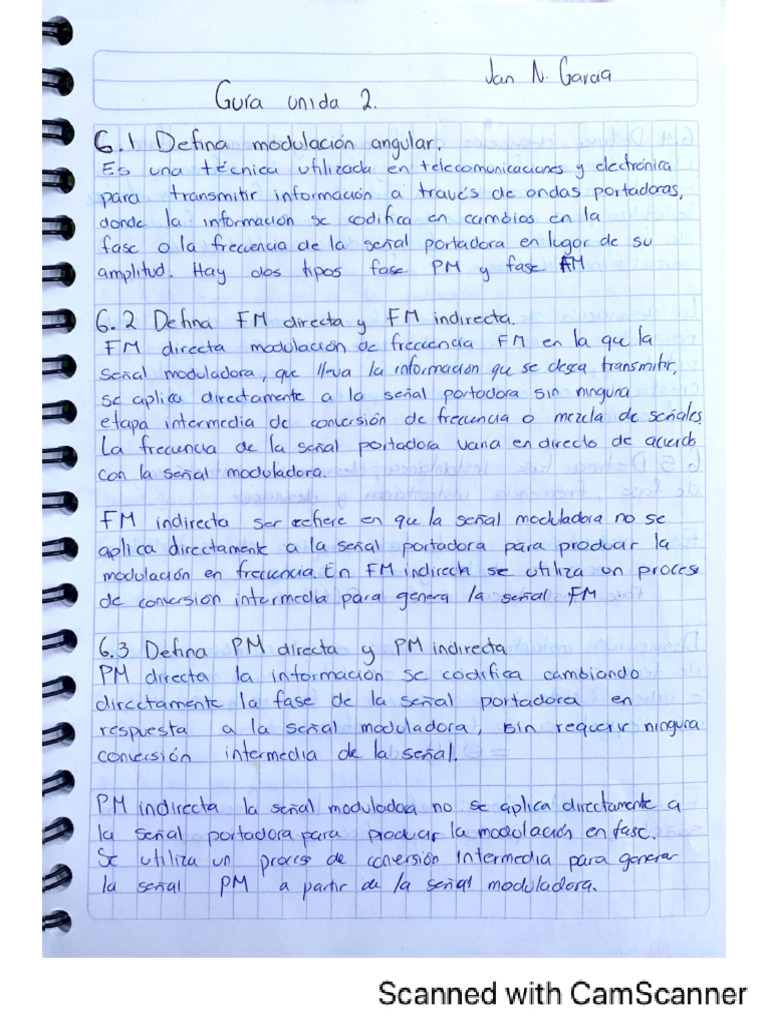 Jan N. Garcia
Guía unida 2.
6.1 Defina modulación angular.
Es una técnica utilizada en telecomunicaciones y electrónica
para transmitir información a través de ondas portadoras,
donde la información se codifica en cambios en la
fase o la frecuencia de la señal portadora en lugar de su
amplitud. Hay dos tipos fase PM y fase FM
6.2 Defina FM directa y FM indirecta.
FM directa modulación de frecuencia FM en la que la
señal moduladora, que lleva la información que se desea transmitir,
se aplica directamente a la señal portadora sin ninguna
etapa intermedia de conversión de frecuencia o mezcla de señales.
La frecuencia de la señal portadora varia en directo de acuerdo
con la señal moduladora.
FM indirecta ser refiere en que la señal moduladora no se
aplica directamente a la señal portadora para producir la
modulación en frecuencia. En FM indirecta se utiliza un proceso
de conversión intermedia para genera la señal FM
6.3 Defina PM directa y PM indirecta
PM directa la información se codifica cambiando
directamente la fase de la señal portadora en
respuesta a la señal moduladora, sin requerir ninguna
conversión intermedia de la señal.
PM indirecta la señal moduladora no se aplica directamente a
la señal portadora para producir la modulación en fase.
Se utiliza un proceso de conversión intermedia para generar
la señal PM a partir de la señal moduladora.
Scanned with CamScanner